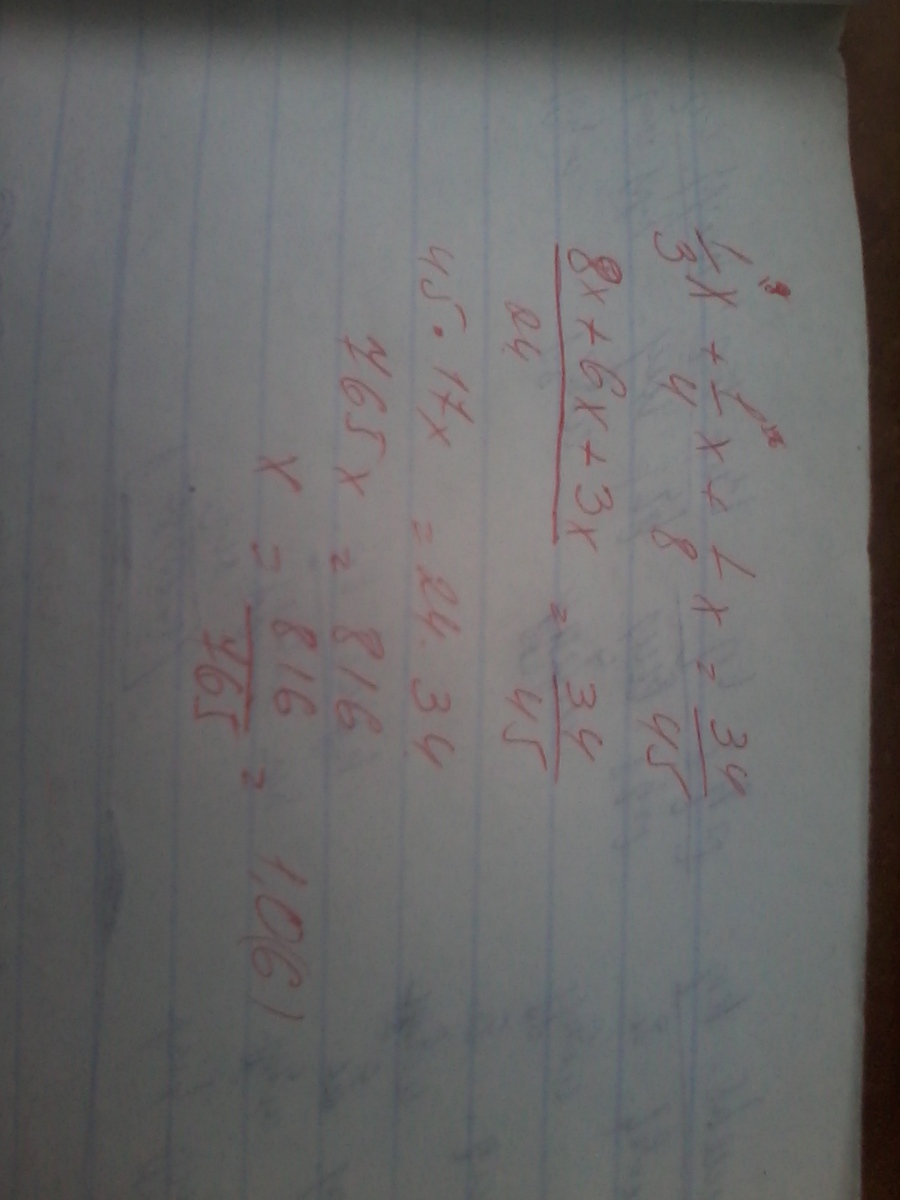 1/3 x + 1/4 x + 1/8 x = 34/45
8x + 6x + 3x / 24 = 34/45
45 · 17x = 24 · 34
765x = 816
x = 816/765 = 1,0(6)